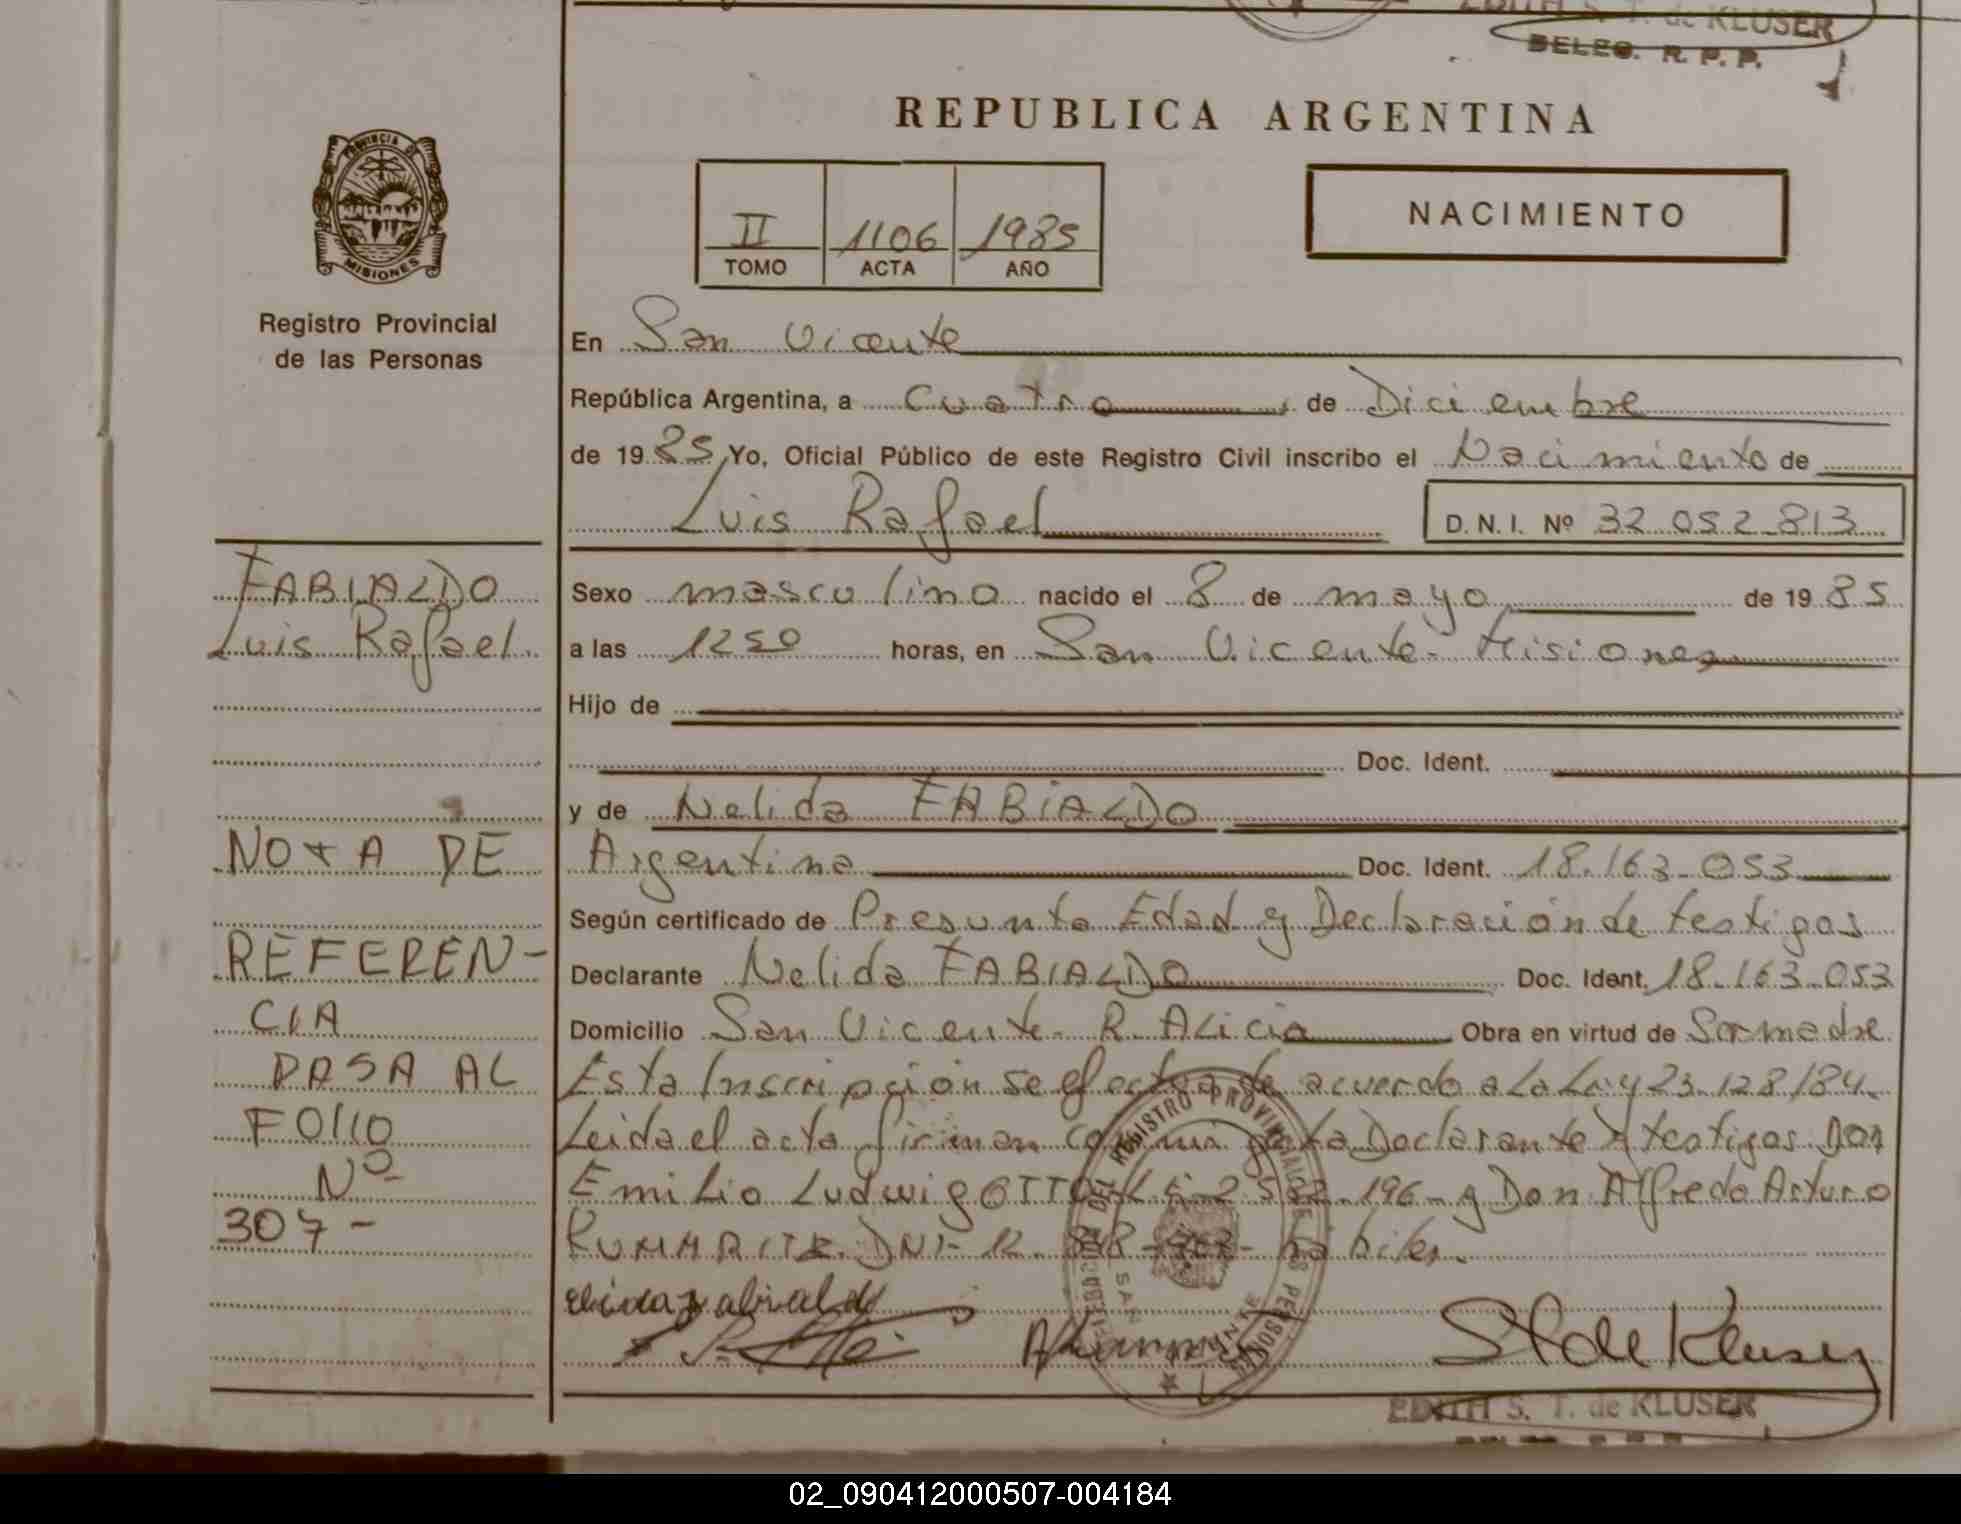 EDITH S. T. de KLUSER
DELEG. R. P. P.
REPUBLICA ARGENTINA
PROVINCIA DE
MISIONES
Registro Provincial
de las Personas
II 1106 1985
TOMO ACTA AÑO
NACIMIENTO
En San Vicente
República Argentina, a cuatro de Diciembre
de 1985 Yo, Oficial Público de este Registro Civil inscribo el Nacimiento de
Luis Rafael D.N.I. Nº 32.052.813
Sexo masculino nacido el 8 de mayo de 1985
a las 1250 horas, en San Vicente - Misiones
Hijo de
Doc. Ident.
y de Nelida FABIALDO
Argentina Doc. Ident. 18.163.053
Según certificado de Presunta Edad y Declaración de testigos
Declarante Nelida FABIALDO Doc. Ident. 18.163.053
Domicilio San Vicente - R. ALicia Obra en virtud de Ser madre
Esta Inscripción se efectua de acuerdo a La Ley 23.128/84.
Leida el acta firman conmigo La Declarante y testigos Don
Emilio Ludwig OTTO y Don Alfredo Arturo
DNI- 12. habiles.
FABIALDO
Luis Rafael
NOTA DE
REFEREN-
CIA
PASA AL
FOLIO
Nº
307-
REGISTRO PROVINCIAL DE LAS PERSONAS
SAN VICENTE
St de Kluser
EDITH S. T. de KLUSER
02_090412000507-004184